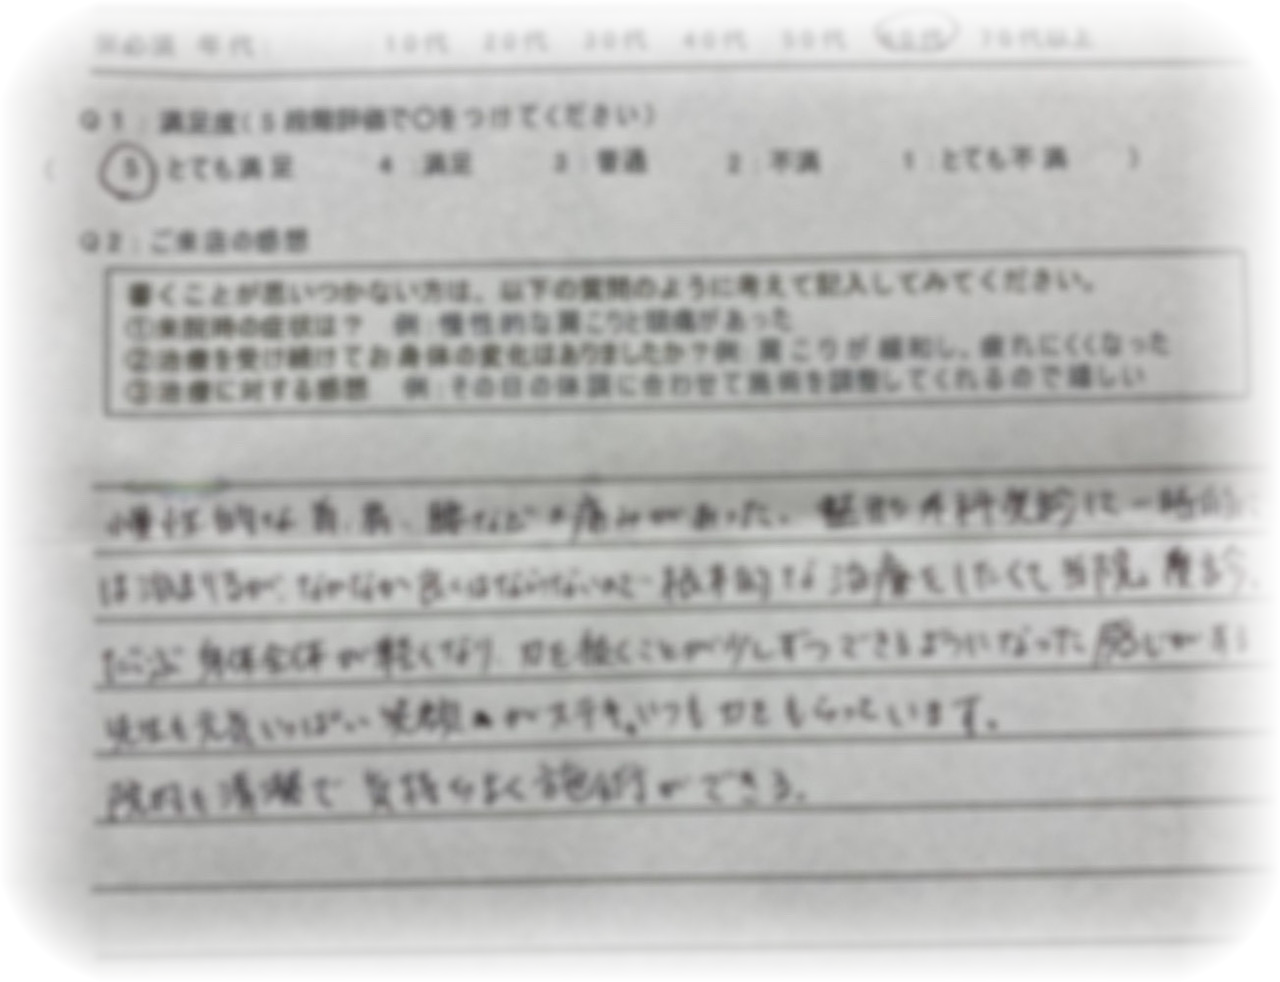 ※必須 年代: 10代 20代 30代 40代 50代 60代 70代以上
Q1:満足度(5段階評価で〇をつけてください)
( 5 とても満足 4:満足 3:普通 2:不満 1:とても不満 )
Q2:ご来店の感想
書くことが思いつかない方は、以下の質問のように考えて記入してみてください。
①来院時の症状は? 例:慢性的な肩こりと頭痛があった
②治療を受け続けてお身体の変化はありましたか?例:肩こりが緩和し、疲れにくくなった
③治療に対する感想 例:その日の体調に合わせて施術を調整してくれるので嬉しい
慢性的な肩、 、膝などの痛みがあった。 一時的に
は治まるが、なかなか良くはならないので根本的な治療をしたくて当院
だいぶ身体全体が軽くなり、力を抜くことが少しずつできるようになった感じがする
先生も元気いっぱい 笑顔 がステキ。いつも力をもらっています。
院内も清潔で気持ちよく施術ができる。